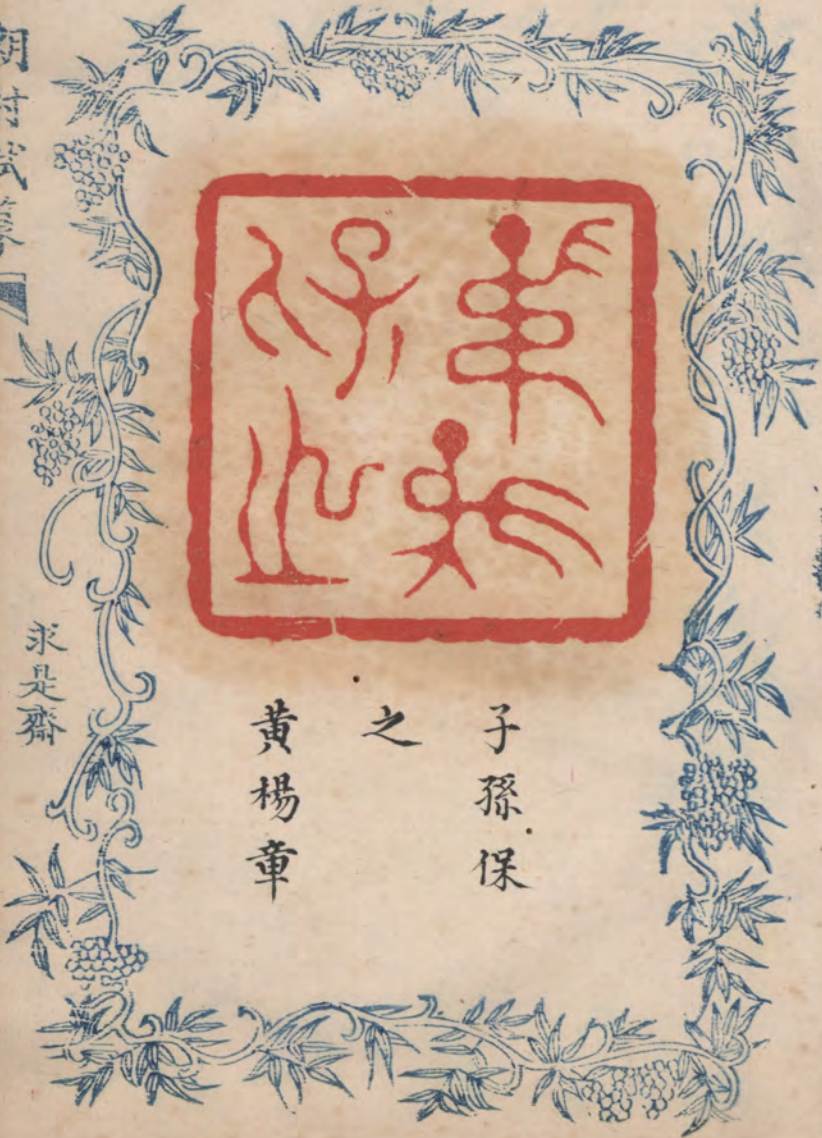 子孫
保之
子孫保
之
黃楊章
求是齋